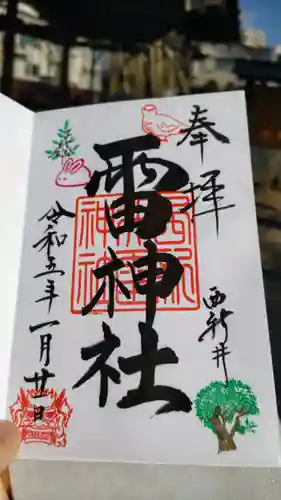 奉拝
西新井
雷神社
令和五年一月廿日